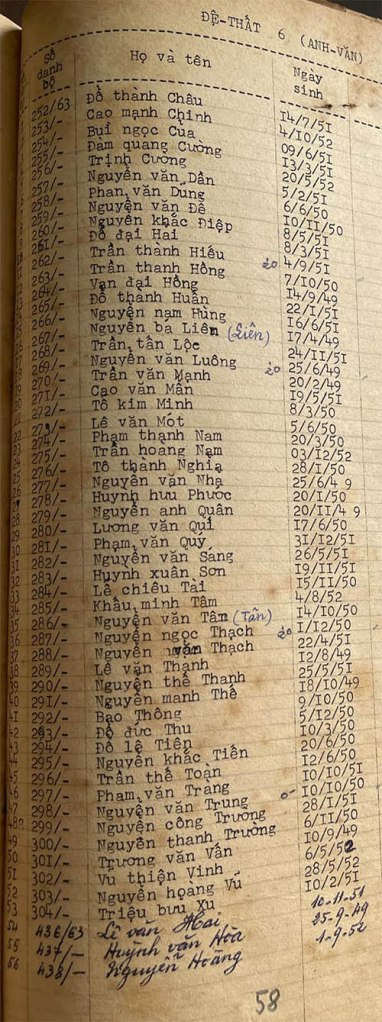 ĐỆ-THẤT 6 (ANH-VĂN)
Số danh bộ Họ và tên Ngày sinh
252/63 Đỗ thành Châu 14/7/51
253/- Cao mạnh Chinh 4/10/52
254/- Bụi ngọc Của 09/6/51
255/- Đam quang Cường 13/3/51
256/- Trịnh Cường 20/5/52
257/- Nguyễn văn Dần 5/2/51
258/- Phan văn Dung 6/6/50
259/- Nguyễn văn Đê 10/11/50
260/- Nguyễn khắc Điệp 8/5/51
261/- Đỗ đại Hai 8/3/51
262/- Trần thành Hiếu 4/9/51
263/- Trần thanh Hồng 7/10/50
264/- Vạn đại Hồng 14/9/49
265/- Đỗ thanh Huấn 22/1/51
266/- Nguyễn nam Hùng 16/6/51
267/- Nguyễn bá Liên (Liên) 17/4/49
268/- Trần tấn Lộc 24/11/51
269/- Nguyễn văn Luông 25/6/49
270/- Trần văn Mạnh 20/2/49
271/- Cao văn Mẫn 19/5/51
272/- Tô kim Minh 8/3/50
273/- Lê văn Một 5/6/50
274/- Phạm thanh Nam 20/3/50
275/- Trần hoang Nam 03/12/52
276/- Tô thành Nghĩa 28/1/50
277/- Nguyễn văn Nha 25/6/49
278/- Huynh hưu Phước 20/1/50
279/- Nguyễn anh Quân 20/11/49
280/- Lương văn Qui 17/6/50
281/- Phạm văn Quý 31/12/51
282/- Nguyễn văn Sang 26/5/51
283/- Huynh xuân Sơn 19/11/51
284/- Lê chiêu Tài 15/11/50
285/- Khẩu minh Tâm 4/8/52
286/- Nguyễn văn Tân (Tân) 14/10/50
287/- Nguyễn ngọc Thạch 1/12/50
288/- Nguyễn văn Thạch 22/4/51
289/- Lê văn Thanh 12/8/49
290/- Nguyễn thế Thanh 25/5/51
291/- Nguyễn manh Thế 18/10/49
292/- Bao Thông 9/10/50
293/- Đỗ đức Thu 5/12/50
294/- Đỗ lệ Tiên 10/3/50
295/- Nguyễn khắc Tiến 20/6/50
296/- Trần thế Toàn 12/6/50
297/- Phạm văn Trang 10/10/51
298/- Nguyễn văn Trung 10/10/50
299/- Nguyễn công Trương 28/1/51
300/- Nguyễn thanh Trường 6/11/50
301/- Trương văn Vấn 10/9/49
302/- Vu thiện Vinh 6/5/52
303/- Nguyễn hoàng Vũ 28/5/52
304/- Triệu bưu Xu 10/2/51
54 436/63 Lê văn Hai 10-11-51
55 437/- Huỳnh văn Hòa 25-9-49
56 438/- Nguyễn Hoàng 1-9-52
58